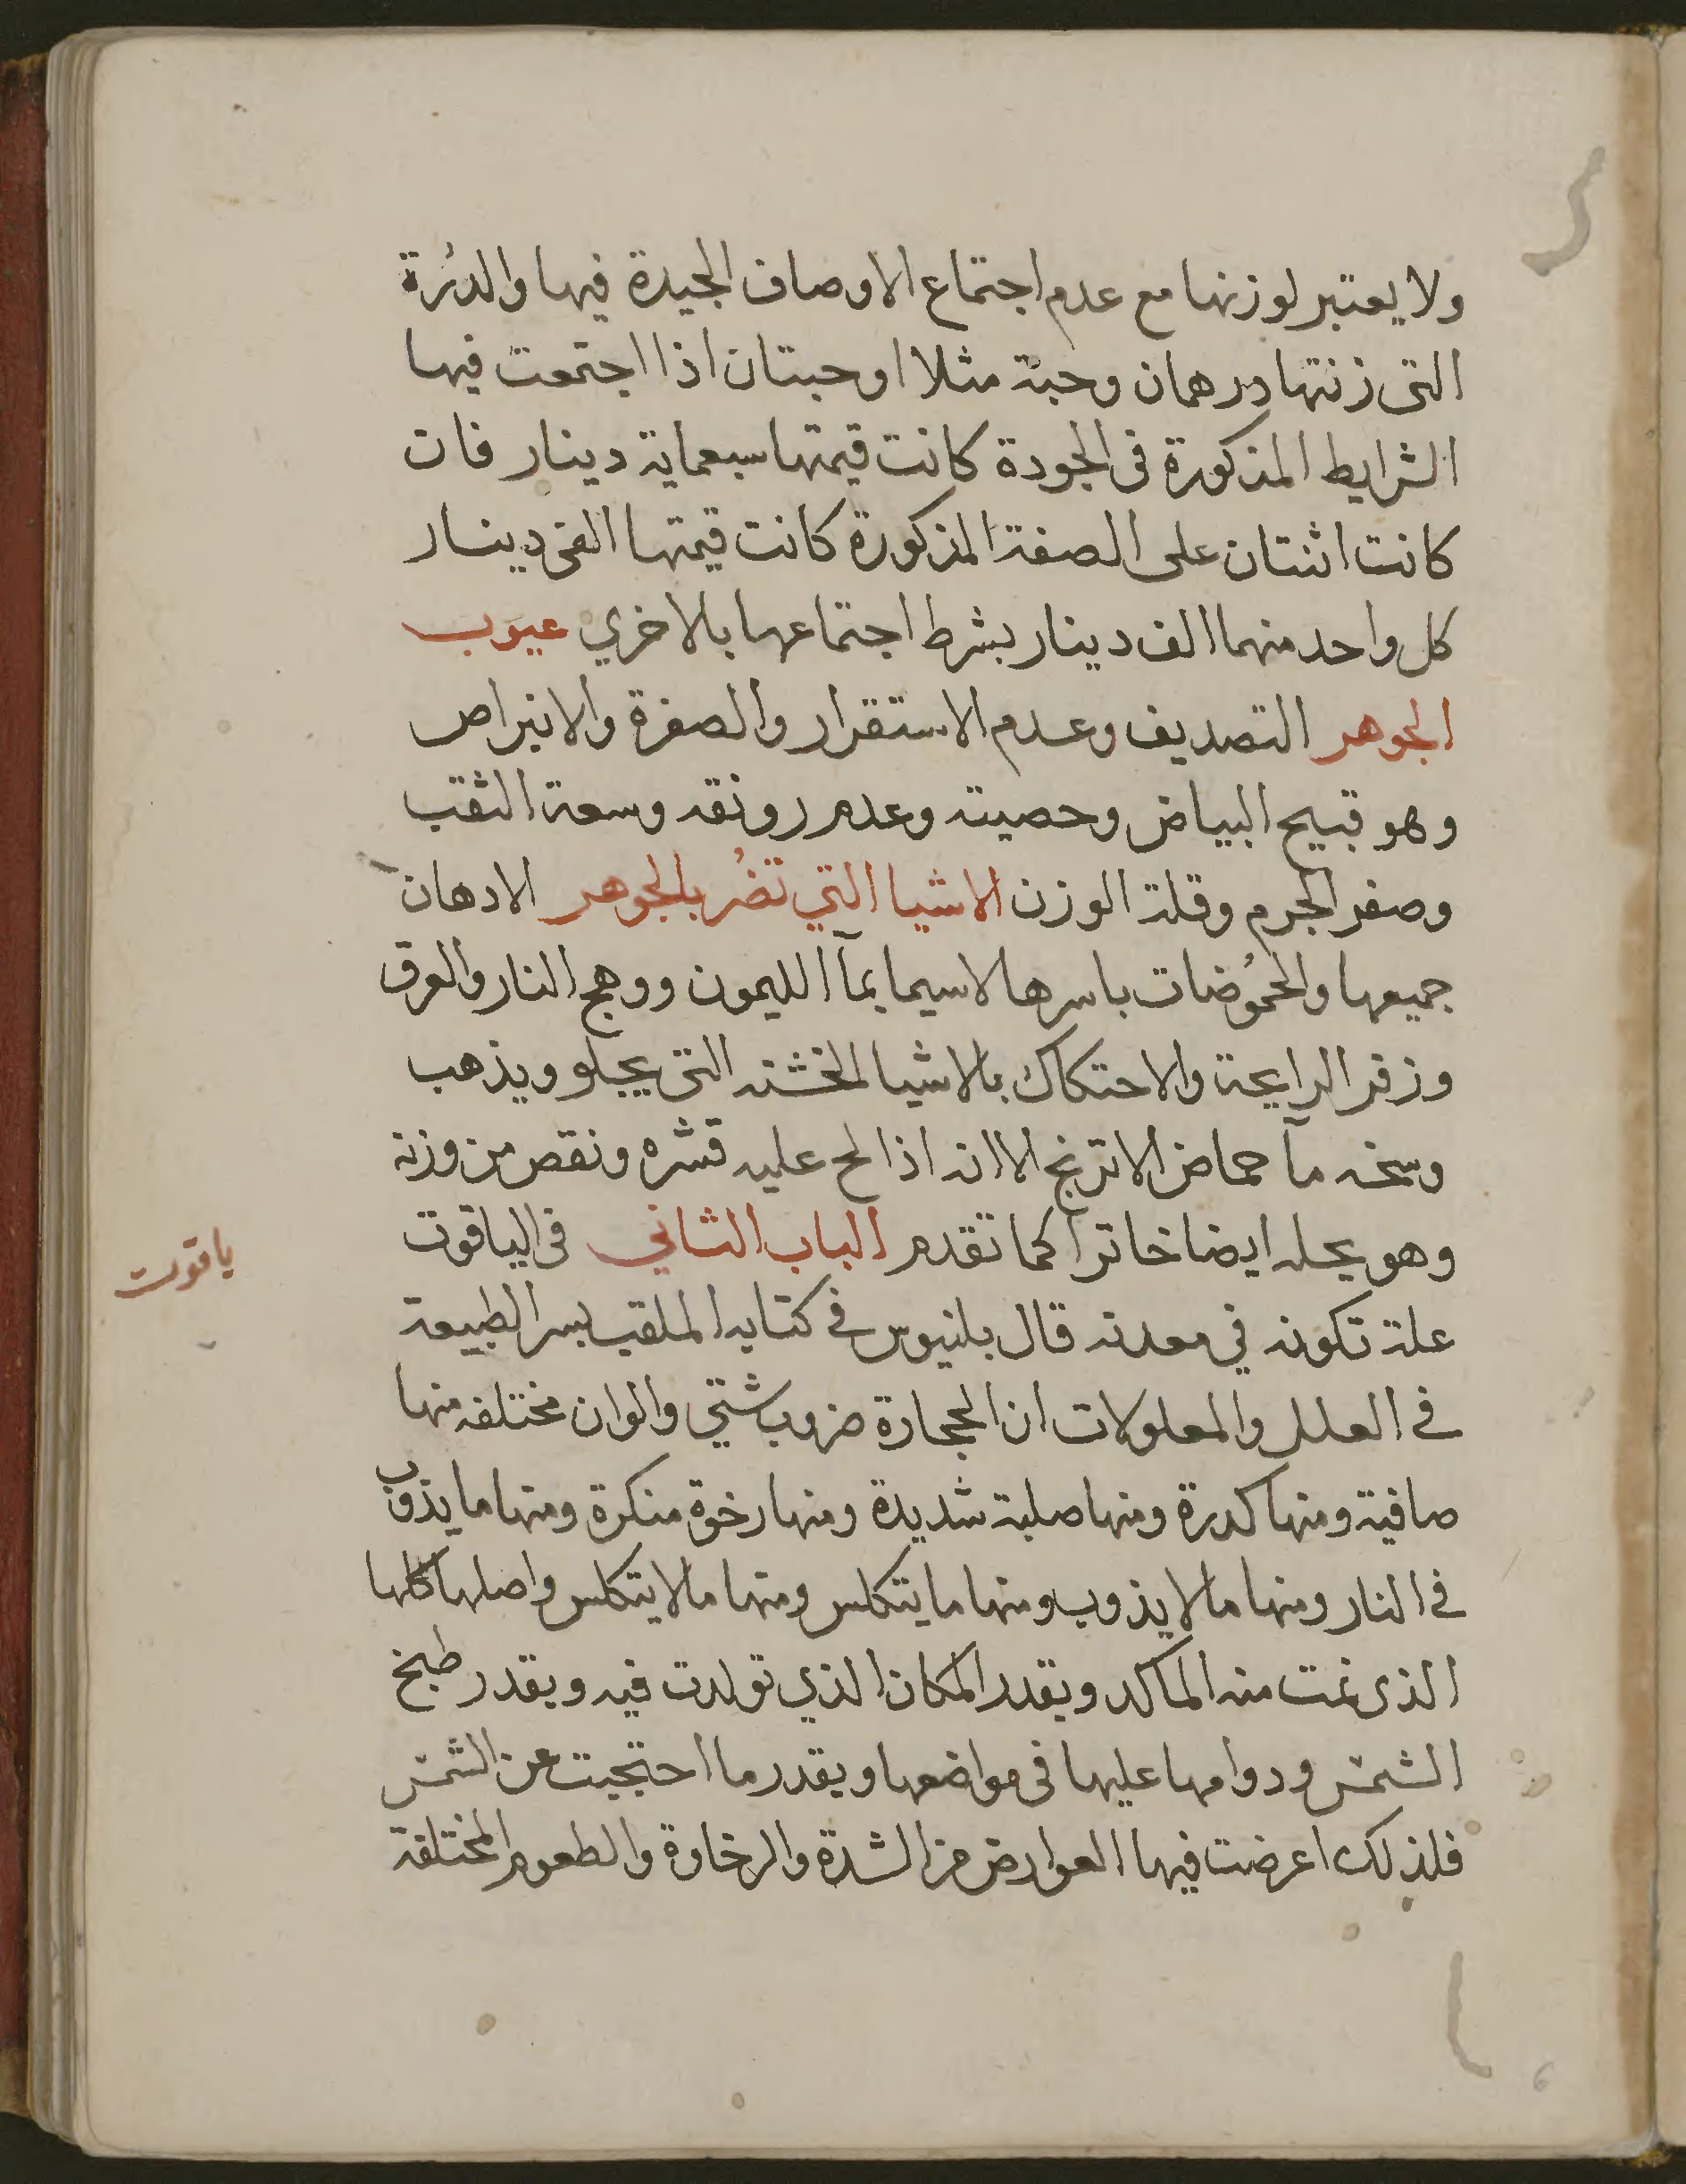 ولا يعتبر لوزنها مع عدم اجتماع الاوصاف الجيدة فيها والدرة
التى زنتها درهمان وحبة مثلا او حبتان اذا اجتمعت فيها
الشرايط المذكورة فى الجودة كانت قيمتها سبعماية دينار فان
كانت اثنتان على الصفة المذكورة كانت قيمتها الفى دينار
كل واحد منهما الف دينار بشرط اجتماعها بالاخري عيوب
الجوهر التصديف وعدم الاستقرار والصفرة والانبراص
وهو قبيح البياض وحصيته وعدم رونقه وسعة الثقب
وصغر الجرم وقلة الوزن الاشيا التي تضُر بالجوهر الادهان
جميعها والحموُضات باسرها لاسيما بمآ الليمون ووهج النار والعرق
وزفر الرايحة والاحتكاك بالاشيا الخشنه التى يجلو ويذهب
وسخه مآ حماض الاترنج الا انه اذا لح عليه قشره ونقص من وزنه
وهو يحله ايضا خاترا كما تقدم الباب الثاني فى الياقوت
ياقوت
علة تكونه في معدنه قال بلنيوس في كتابه الملقب بسر الطبيعة
في العلل والمعلولات ان الحجارة ضروب شتي والوان مختلفه منها
صافية ومنها كدرة ومنها صلبة شديدة ومنها رخوة منكرة ومنها ما يذوب
في النار ومنها ما لا يذوب ومنها ما يتكلس ومنها ما لا يتكلس واصلها كلها
الذى نمت منه الماكد وبقدر المكان الذي تولدت فيه وبقدر طبخ
الشمس ودوامها عليها فى مواضعها وبقدر ما احتجبت عن الشمس
فلذلك اعرضت فيها العوارض من الشدة والرخاوة والطعوم المختلفة
6